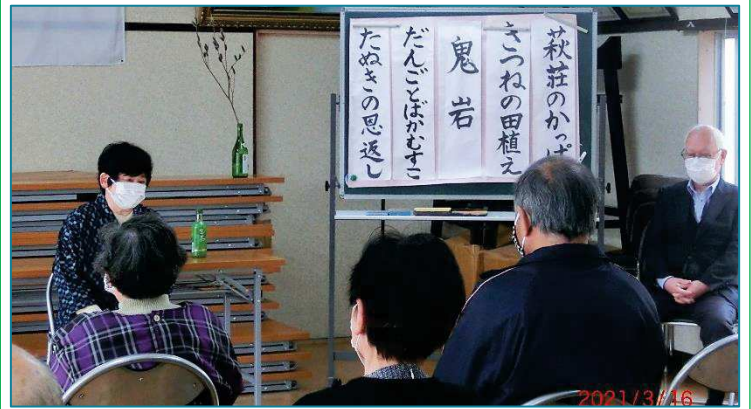 萩荘のかっぱ
きつねの田植え
鬼岩
だんごとばかむすこ
たぬきの恩返し
2021/3/16